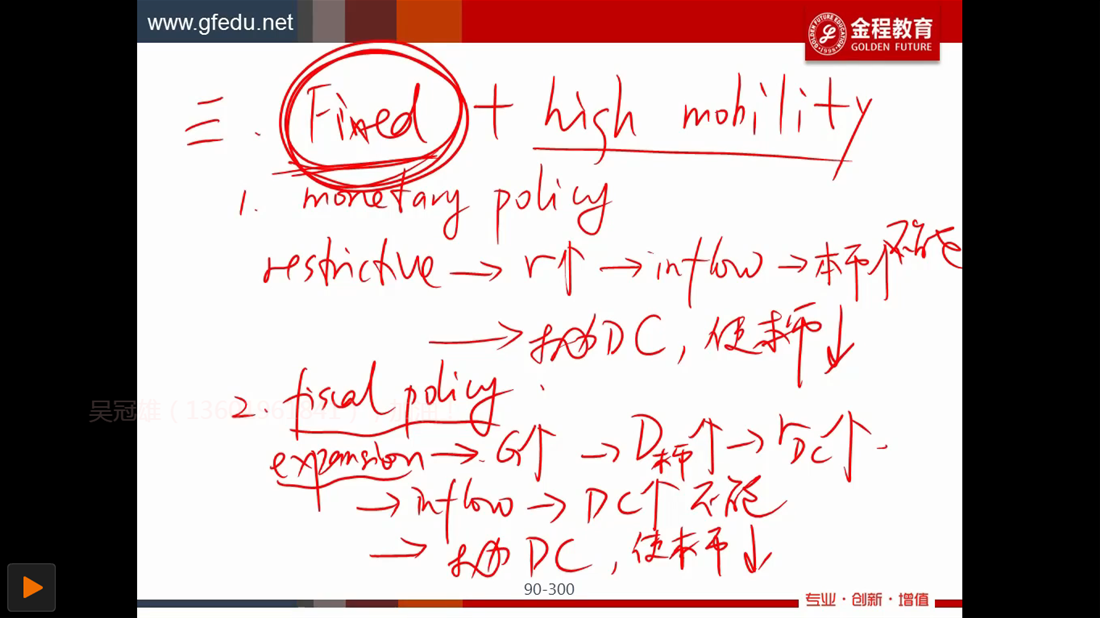 www.gfedu.net
金程教育
GOLDEN FUTURE
三. Fixed + high mobility
1. monetary policy
restrictive → r↑ → inflow → 本币↑不能
→ 抛DC, 使本币↓
2. fiscal policy
expansion → G↑ → D本币↑ → rDC↑
→ inflow → DC↑ 不能
→ 抛DC, 使本币↓
吴冠雄
90-300
专业·创新·增值